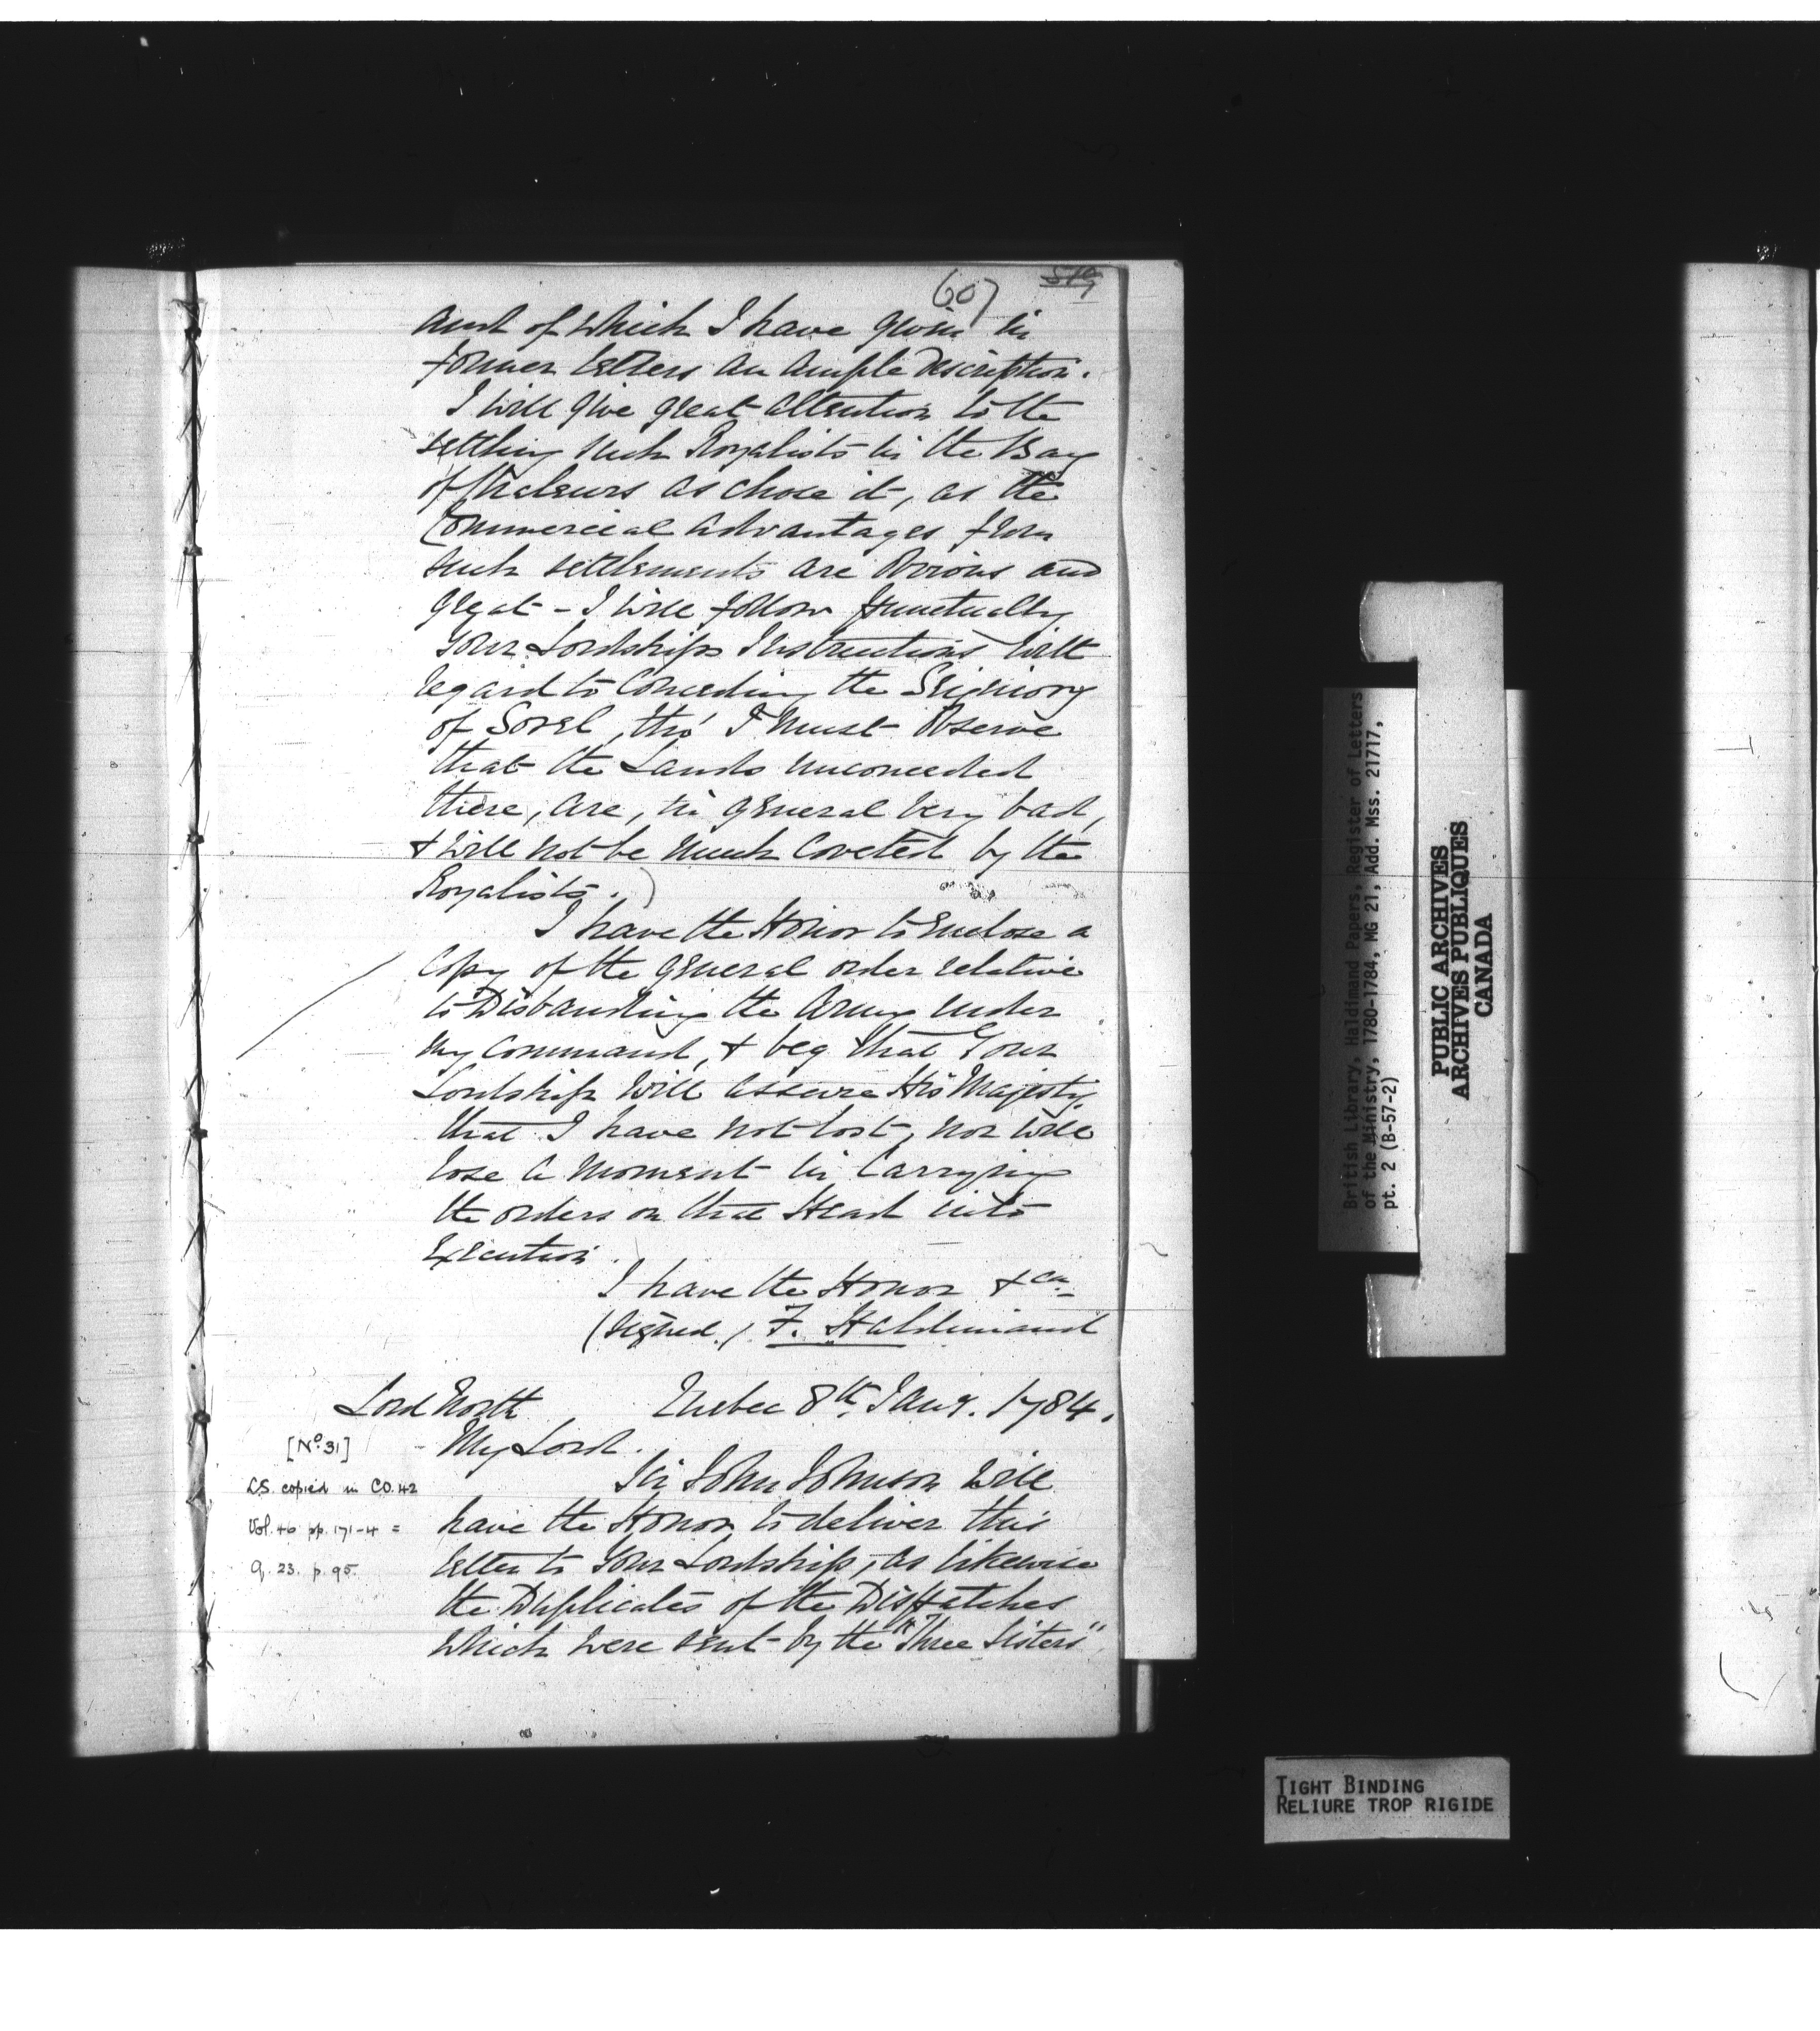 607
and of which I have given in
former letters an ample description.
I will give great attention to the
settling such Royalists in the Bay
of Chaleurs as chose it, as the
Commercial advantages from
such settlements are obvious and
great - I will follow punctually
Your Lordships Instructions with
regard to Conceeding the Seigniory
of Sorel, tho' I must observe
that the Lands unconceeded
there, are, in general very bad,
& will not be much Coveted by the
Royalists.)
I have the Honor to enclose a
Copy of the general order relative
to Disbanding the Army under
my Command, & beg that Your
Lordship will assure His Majesty
that I have not lost, nor will
lose a moment in Carrying
the orders on that Head into
Execution.
I have the Honor &ca.
(signed.) F. Haldimand
Lord North Quebec 8th. Jany. 1784.
[No. 31] My Lord.
Sir John Johnson will
L.S. copied in CO. 42
have the Honor to deliver this
Vol. 46 pp. 171-4 =
letter to Your Lordship, as likewise
Q. 23. p. 95.
the Duplicates of the Dispatches
which were sent by the "Three Sisters"
British Library, Haldimand Papers, Register of Letters
of the Ministry, 1780-1784, MG 21, Add. Mss. 21717,
pt. 2 (B-57-2)
PUBLIC ARCHIVES
ARCHIVES PUBLIQUES
CANADA
TIGHT BINDING
RELIURE TROP RIGIDE